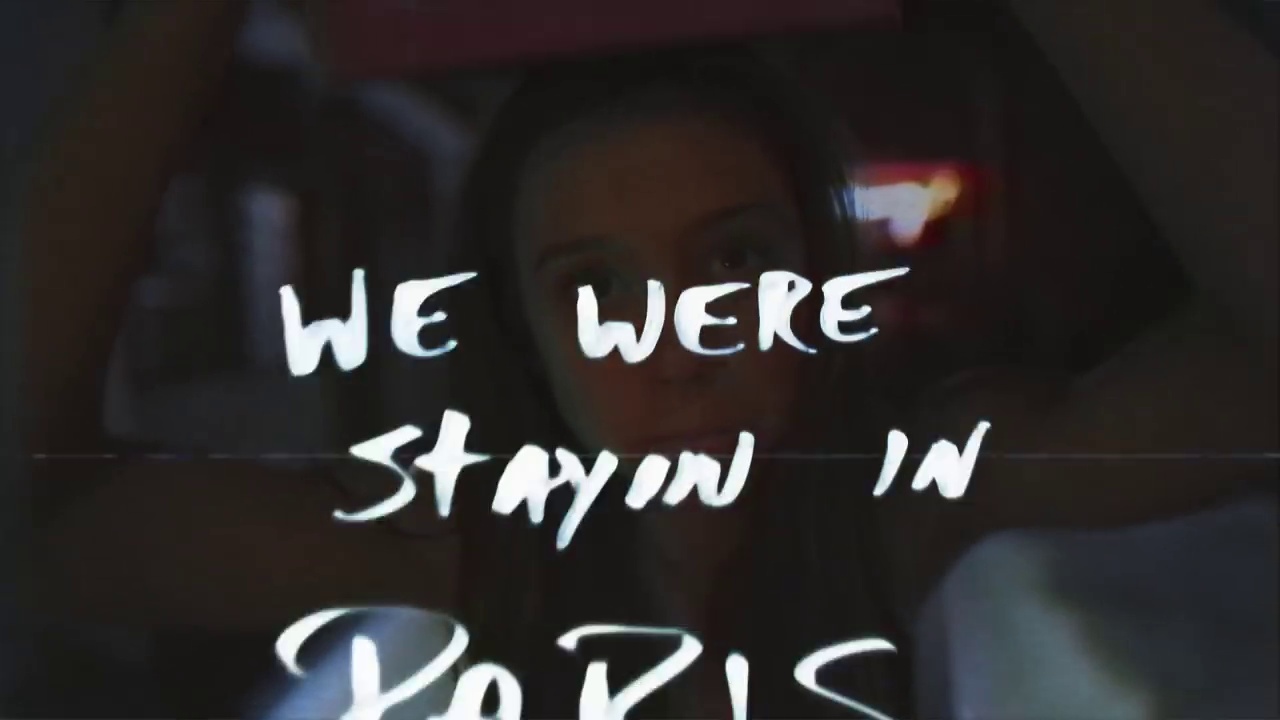 WE WERE
StAyIN IN
PARIS